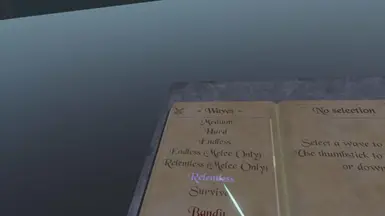 - Waves -
Medium
Hard
Endless
Endless (Melee Only)
Relentless (Melee Only)
Relentless
Survive
Bandit
No selection
Select a wave to
Use thumbstick to
or down